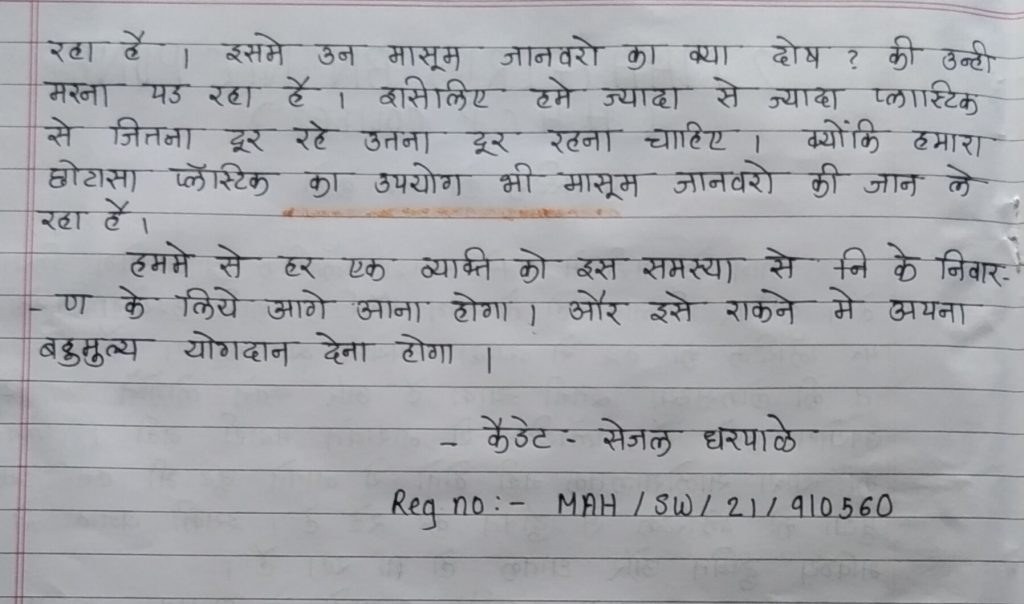 रहा है । इसमे उन मासूम जानवरो का क्या दोष ? की उन्ही
मरना पड रहा है । इसिलिए हमे ज्यादा से ज्यादा प्लास्टिक
से जितना दूर रहे उतना दूर रहना चाहिए । क्योंकि हमारा
छोटासा प्लॅस्टिक का उपयोग भी मासूम जानवरो की जान ले
रहा है ।
हममे से हर एक व्यक्ति को इस समस्या से नि के निवार-
- ण के लिये आगे आना होगा । और इसे राकने मे अपना
बहुमुल्य योगदान देना होगा ।
- कैडेट - सेजल घरपाळे
Reg no :- MAH / SW / 21 / 910560